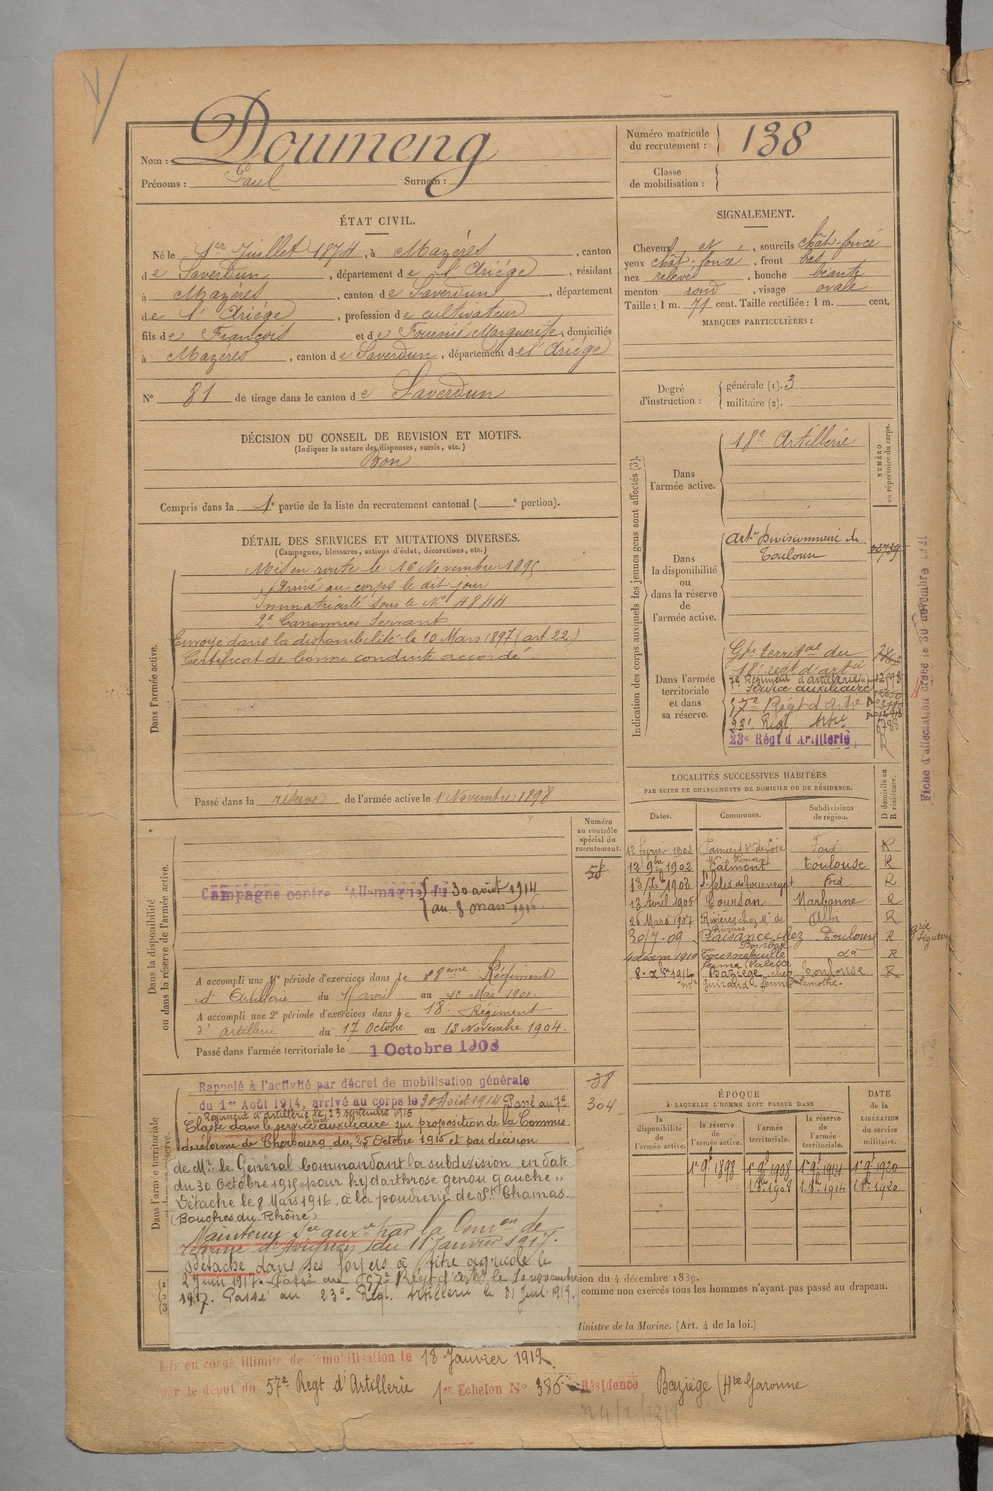 Nom : Doumeng
Prénoms : Paul Surnom :
Numéro matricule
du recrutement : 138
Classe
de mobilisation :
ÉTAT CIVIL.
Né le 1er Juillet 1874, à Mazères, canton
de Saverdun, département de l'Ariège, résidant
à Mazères, canton de Saverdun, département
de l'Ariège, profession de cultivateur
fils de François et de Fournié Marguerite, domiciliés
à Mazères, canton de Saverdun, département de l'Ariège
N° 81 de tirage dans le canton de Saverdun
SIGNALEMENT.
Cheveux et, sourcils chât-foncé
yeux chât-foncé, front bas
nez relevé, bouche béante
menton rond, visage ovale
Taille : 1 m. 71 cent. Taille rectifiée : 1 m. cent.
MARQUES PARTICULIÈRES :
Degré
d'instruction :
générale (1). 3
militaire (2).
DÉCISION DU CONSEIL DE REVISION ET MOTIFS.
(Indiquer la nature des dispenses, sursis, etc.)
Bon
Compris dans la 1e partie de la liste du recrutement cantonal ( e portion).
DÉTAIL DES SERVICES ET MUTATIONS DIVERSES.
(Campagnes, blessures, actions d'éclat, décorations, etc.)
Dans l'armée active.
Mis en route le 16 Novembre 1895
Arrivé au corps le dit jour
Immatriculé sous le N° 4844
2e Canonnier Servant
Envoyé dans la disponibilité le 10 Mars 1897 (art 22.)
Certificat de bonne conduite accordé
Passé dans la réserve de l'armée active le 1 Novembre 1898
Indication des corps auxquels les jeunes gens sont affectés (3).
NUMÉRO
au répertoire du corps.
Dans
l'armée active.
18e Artillerie
Dans
la disponibilité
ou
dans la réserve
de
l'armée active.
Artie Divisionnaire de
Toulouse
Dans l'armée
territoriale
et dans
sa réserve.
Gpe territal du
18e regt d'artie
7e Régiment d'artillerie
service auxiliaire
57e Régt d'Artie
23e Régt Artie
23e Régt d'Artillerie
Fiche d'affectation créée le 30 novembre
LOCALITÉS SUCCESSIVES HABITÉES
PAR SUITE DE CHANGEMENTS DE DOMICILE OU DE RÉSIDENCE.
Dates. Communes. Subdivisions
de région. D domicile ou
R résidence.
1er février 1902 Foix R
12 9bre 1902 Calmont Toulouse R
Foix R
13 Avril 1905 Coursan Narbonne R
26 Mars 1907 Rivières chez Mr de Albi R
30/7.09 Plaisance chez Toulouse R
4 décem 1910 Tournefeuille do R
8. Xbre 1914 Baziège chez Toulouse R
Dans la disponibilité
ou dans la réserve de l'armée active.
Numéro
au contrôle
spécial du
recrutement.
Campagne contre l'Allemagne du 30 août 1914
au 8 mars 1916
A accompli une 1e période d'exercices dans le 18eme Régiment
d'Artillerie du 4 avril au 1er Mai 1901.
A accompli une 2e période d'exercices dans le 18e Régiment
d'artillerie du 17 Octobre au 13 Novembre 1904.
Passé dans l'armée territoriale le 1 Octobre 1908
Dans l'armée territoriale
38
304
Rappelé à l'activité par décret de mobilisation générale
du 1er Août 1914, arrivé au corps le 30 Août 1914 Passé au 7e
Régiment d'artillerie le 23 septembre 1915
Classé dans le service auxiliaire sur proposition de la Commis.
de réforme de Cherbourg du 25 Octobre 1915 et par décision
de Mr le Général Commandant la subdivision, en date
du 30 Octobre 1915 pour "hydarthrose genou gauche"
Détaché le 8 Mars 1916, à la poudrerie de St Chamas
(Bouches du Rhône)
Maintenu Sce auxre par la Comon de
réforme d'Avignon du 11 Janvier 1917.
Détaché dans ses foyers à titre agricole le
2 Juin 1917. Passé au 57e Régt d'artie le 10 novembre
1917. Passé au 23e Régt Artillerie le 31 Juil. 1919.
ÉPOQUE
À LAQUELLE L'HOMME DOIT PASSER DANS
DATE
de la
LIBÉRATION
du service
militaire.
la
disponibilité
de
l'armée active.
la réserve
de
l'armée active.
l'armée
territoriale.
la réserve
de
l'armée
territoriale.
1er 9bre 1898 1er 9bre 1908 1er 9bre 1914 1er 9bre 1920
1er 1908 1er 1914 1er 1920
ion du 4 décembre 1889.
comme non exercés tous les hommes n'ayant pas passé au drapeau.
Ministre de la Marine. (Art. 4 de la loi.)
Mis en congé illimité de démobilisation le 18 Janvier 1919
par le dépôt du 57e Regt d'Artillerie 1er Echelon N° 385 Résidence Baziège (Hte Garonne